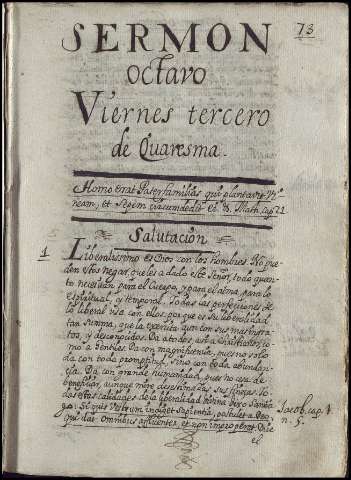 73
SERMON
octavo
Viernes tercero
de Quaresma.
Homo erat Pater familias qui plantavit Vi
neam, et Sepem circumdedit ei. S. Math. cap. 21
Salutacion
1
Liberalissimo es Dios con los hombres. No pue
den estos negar, que les a dado este Señor, todo quan
to necesitan para el Cuerpo, y para el alma, para lo
espiritual, y temporal. Todas las perfecciones de
lo liberal usa con ellos, por que es su liberalidad,
tan summa, que la exercita aun con sus mas ingra
tos, y desconocidos. Da a todos, asi a Christianos, co
mo a Gentiles. Da con magnificencia, pues no solo
da con toda promptitud, sino con toda abundan
cia. Da con grande humanidad, pues no cesa de
beneficiar, aunque mire desestimadas sus finezas. To
das estas calidades de la liberalidad divina dixo Santia
go: Si quis Vestrum indiget Sapientia, postulet a Deo,
qui dat omnibus affluenter, et non improperat. Dice
el
Jacob. cap. 1.
n. 5.